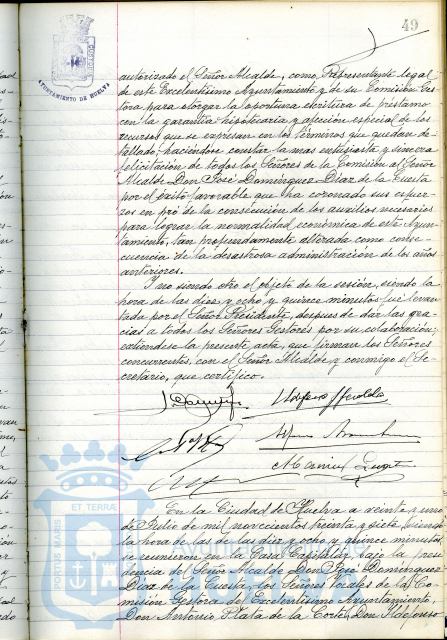 49
AYUNTAMIENTO DE HUELVA
autorizado el Señor Alcalde, como Representante legal
de este Excelentísimo Ayuntamiento y de su Comisión Ges-
tora para otorgar la oportuna escritura de préstamo
con la garantía hipotecaria y afección especial de los
recursos que se expresan en los términos que quedan de-
tallado; haciéndose constar la mas entusiasta y sincera
felicitación de todos los Señores de la Comisión al Señor
Alcalde Don José Domínguez-Díaz de la Cuesta
por el éxito favorable que ha coronado sus esfuer-
zos en pró de la consecución de los auxilios necesarios
para lograr la normalidad económica de este Ayun-
tamiento, tan profundamente alterada como conse-
cuencia de la desastrosa administración de los años
anteriores.
Y no siendo otro el objeto de la sesión, siendo la
hora de las diez y ocho y quince minutos fué levan-
tada por el Señor Presidente, despues de dar las gra-
cias a todos los Señores Gestores por su colaboración;
extiendese la presente acta, que firman los Señores
concurrentes, con el Señor Alcalde y conmigo el Se-
cretario, que certifico.
En la Ciudad de Huelva a veinte y uno
de Julio de mil novecientos treinta y siete, siendo
la hora de las diez y ocho y quince minutos,
se reunieron en la Casa Capitular bajo la presi-
dencia del Señor Alcalde Don José Domínguez-
Díaz de la Cuesta, los Señores Vocales de la Co-
misión Gestora del Excelentísimo Ayuntamiento,
Don Antonio Plata de la Corte, Don Ildefonso
PORTUS MARIS ET TERRÆ